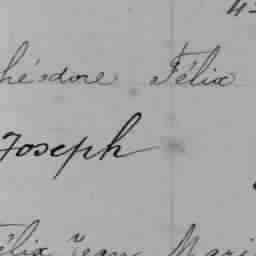 héodore Félix
Joseph
élix Jean Mari